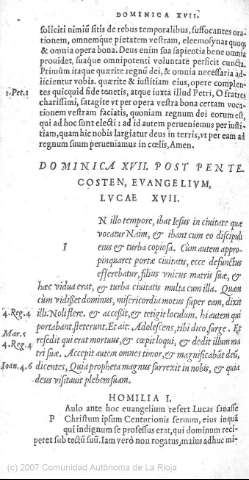 DOMINICA XVII.
soliciti nimiũ sitis de rebus temporalibus, suffocantes ora-
tionem, omnemque pietatem vestram, eleemosynas quoq;
& omnia opera bona. Deus enim sua sapientia bene omnia
prouidet, suaque omnipotenti voluntate perficit cuncta.
Primùm itaque quærite regnũ dei, & omnia necessaria ad-
iicientur vobis. quærite & iustitiam eius, opere complen-
1. Pet. 1 tes quicquid fide tenetis, atque iuxta illud Petri, O fratres
charissimi, satagite vt per opera vestra bona certam voca-
tionem vestram faciatis, quoniam regnum dei eorum est,
qui ad hoc sunt electi: ad id autem peruenienus per iusti-
tiam, quam hic nobis largiatur deus in terris, vt per eam ad
regnum suum perueniamus in cœlis, Amen.
DOMINICA XVII. POST PENTE
COSTEN, EVANGELIVM,
LVCAE XVII.
IN illo tempore, ibat Iesus in ciuitatẽ quæ
vocatur Naim, & ibant cum eo discipuli
eius & turba copiosa. Cum autem appro-
pinquaret portæ ciuitatis, ecce defunctus
efferebatur, filius vnicus matris suæ, &
hæc vidua erat, & turba ciuitatis multa cum illa. Quam
cum vidisset dominus, misericordia motus super eam, dixit
4. Reg. 4 illi. Noli flere. & accessit, & tetigit loculum. hi autem qui
portabant, steterunt. Et ait. Adolescens, tibi dico surge. Et
Mar. 5
4. Reg. 4 resedit qui erat mortuus, & cœpit loqui, & dedit illum ma
tri suæ. Accepit autem omnes timor, & magnificabãt deũ,
Ioan. 4. 6 dicentes, Quia propheta magnus surrexit in nobis, & quia
deus visitauit plebem suam.
HOMILIA I.
PAulo ante hoc euangelium refert Lucas suasisse
Christum ipsum Centurionis seruum, eius inquã
qui indignum se professus erat, qui dominum reci-
peret sub tectũ suũ. Iam verò non rogatus, maius adhuc mi-
(c) 2007 Comunidad Autónoma de La Rioja